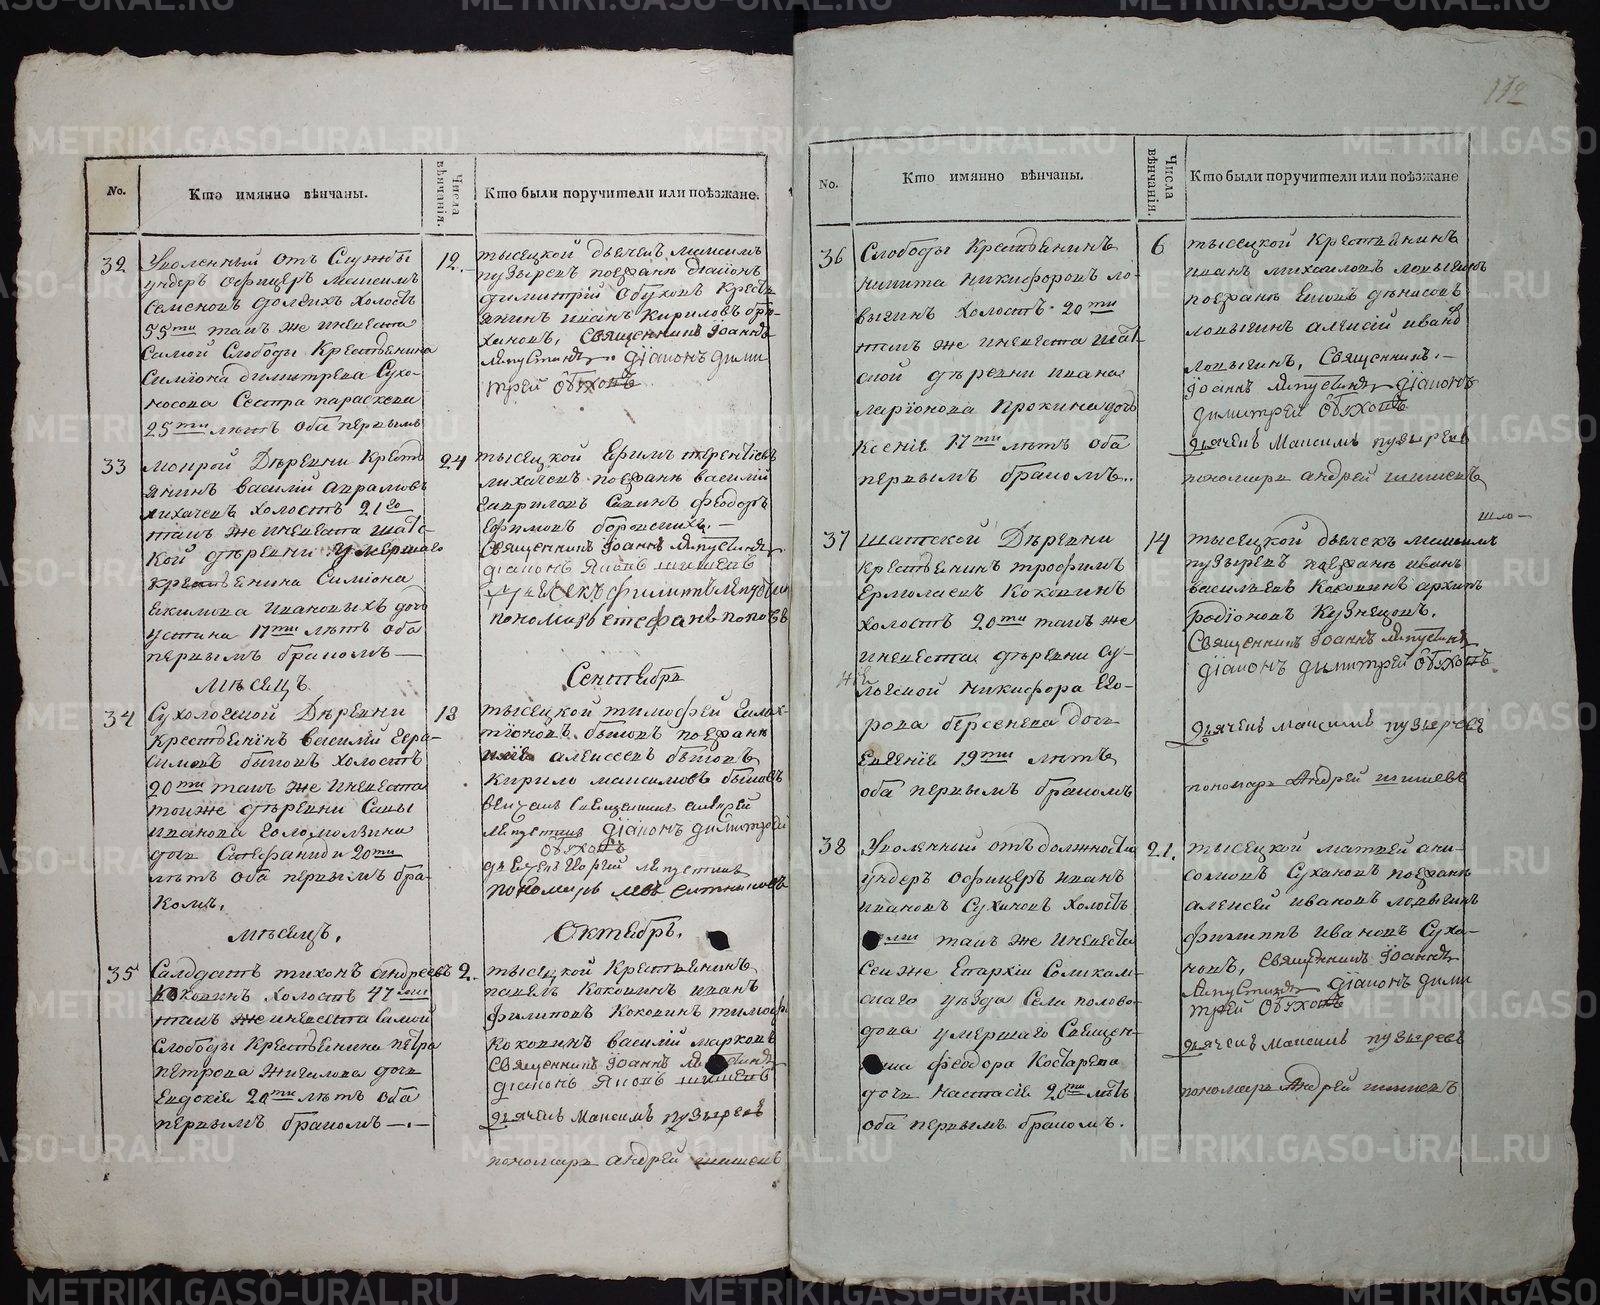 No.
Кто имянно вѣнчаны.
Числа вѣнчанія.
Кто были поручители или поѣзжане.
32
Уволенный отъ Службы
ундеръ офицеръ Максимъ
Семеновъ Долгихъ холостъ
55ти такъ же иневѣста
Самой Слободы Крестьянина
Симіона Димитрева Сухо-
носова Сестра параскева
25ти лѣтъ оба первымъ
12.
тысецкой дьячекъ Максимъ
пузыревъ поезжанѣ діаконъ
Димитрій Обуховъ Кресть
янинъ иванъ Кириловъ
хановъ, Священникъ Іоаннъ
Ляпустинъ діаконъ Дими
трей Обуховъ
33
Мокрой Деревни Кресть
янинъ василій аврамовъ
лихачевъ холостъ 21го
такъ же иневѣста шатс-
кой деревни умершаго
крестьянина Симіона
Екимова ивановыхъ дочь
устина 17ти лѣтъ оба
первымъ бракомъ —
24
тысецкой Ефимъ терентіевъ
лихачевъ поезжанѣ василій
гавриловъ Савинъ Феодоръ
Ефимовъ боровскихъ. —
Священникъ Іоаннъ Ляпустинъ
діаконъ Яковъ шишевъ
пономарь стефанъ поповъ
мѣсецъ
Сентябрь
34
Сухоложской Деревни
крестьянинъ василій Гера-
симовъ быковъ холостъ
20ти такъ же иневѣста
тоиже деревни Савы
ивановаГоломолзина
дочь Стефанида 20ти
лѣтъ оба первымъ бра-
комъ.
18
тысецкой тимофей Галак-
тіоновъ быковъ поезжанѣ
алексеевъ быковъ
Кирило максимовъ быковъ
венчалъ Священникъ андрей
Ляпустинъ діаконъ Димитрей
Обуховъ
дьячекъ Георгій Ляпустинъ
пономарь левъ Ситниковъ
мѣсецъ.
Октябрь.
35
Салдатъ тихонъ андреевъ
Коковинъ холостъ 47ми
такъ же иневѣста Самой
Слободы Крестьянина петра
петрова жигалова дочь
Евдокіе 20ти лѣтъ оба
первымъ бракомъ —.—
2.
тысецкой Крестьянинъ
павелъ Коковинъ иванъ
филиповъ Коковинъ тимоф.
коковинъ василій марковъ
Священникъ Іоаннъ
діаконъ Яковъ шишевъ
дьячекъ Максимъ пузыревъ
пономарь андрей шишевъ
No.
Кто имянно вѣнчаны.
Числа вѣнчанія.
Кто были поручители или поѣзжане
36
Слободы Крестьянинъ
никита никифоровъ ло-
выгинъ холостъ 20ти
такъ же иневѣста шат-
ской деревни ивана
ларіонова прокина дочь
Ксеніе 17ти лѣтъ оба
первымъ бракомъ..
6
тысецкой Крестьянинъ
иванъ михаиловъ ловыгинъ
поезжанѣ Еловъ денисовъ
ловыгинъ алексій ивановъ
ловыгинъ, Священникъ. —
Іоаннъ Ляпустинъ діаконъ
Димитрей Обуховъ
дьячекъ Максимъ пузыревъ
пономарь андрей шишевъ
37
шатской Деревни
крестьянинъ трофимъ
Ермолаевъ Коковинъ
холостъ 20ти такъ же
иневѣста деревни Су-
никифора Его-
рова берсенева дочь
Евгеніе 19ти лѣтъ
оба первымъ бракомъ
14
тысецкой дьячекъ максимъ
пузыревъ поезжанѣ иванъ
васильевъ Коковинъ архипъ
родіоновъ Кузнецовъ.
Священникъ Іоаннъ Ляпустинъ
діаконъ Димитрей Обуховъ
дьячекъ Максимъ пузыревъ
пономарь Андрей шишевъ
38
Уволенный отъ должности
ундеръ офицеръ иванъ
ивановъ Сухановъ холостъ
такъ же иневѣста
Сеи же Епархіи Соликам-
скаго уезда Села полово-
дова умершаго Священ-
ника феодора Костарева
дочь настасіе 20ти лѣтъ
оба первымъ бракомъ.
21.
тысецкой матвей ани-
симовъ Сухановъ поезжанѣ
алексей ивановъ ловыгинъ
филиппъ ивановъ Суха-
новъ, Священникъ Іоаннъ
Ляпустинъ діаконъ Дими
трей Обуховъ
дьячекъ Максимъ пузыревъ
пономарь Андрей шишевъ
METRIKI.GASO-URAL.RU